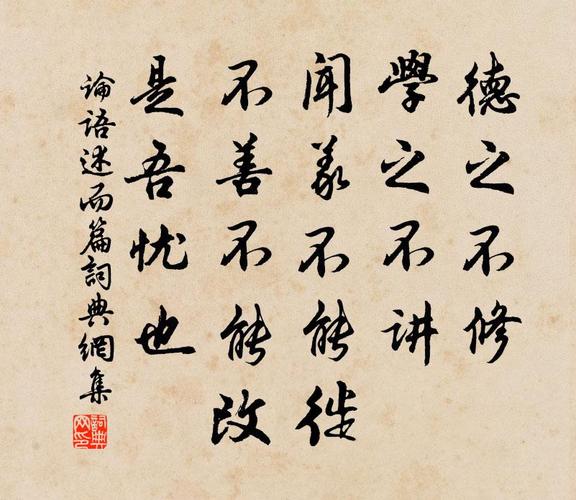 德之不修
學之不讲
闻义不能徙
不善不能改
是吾忧也
论语述而篇詞典網集
詞典网印